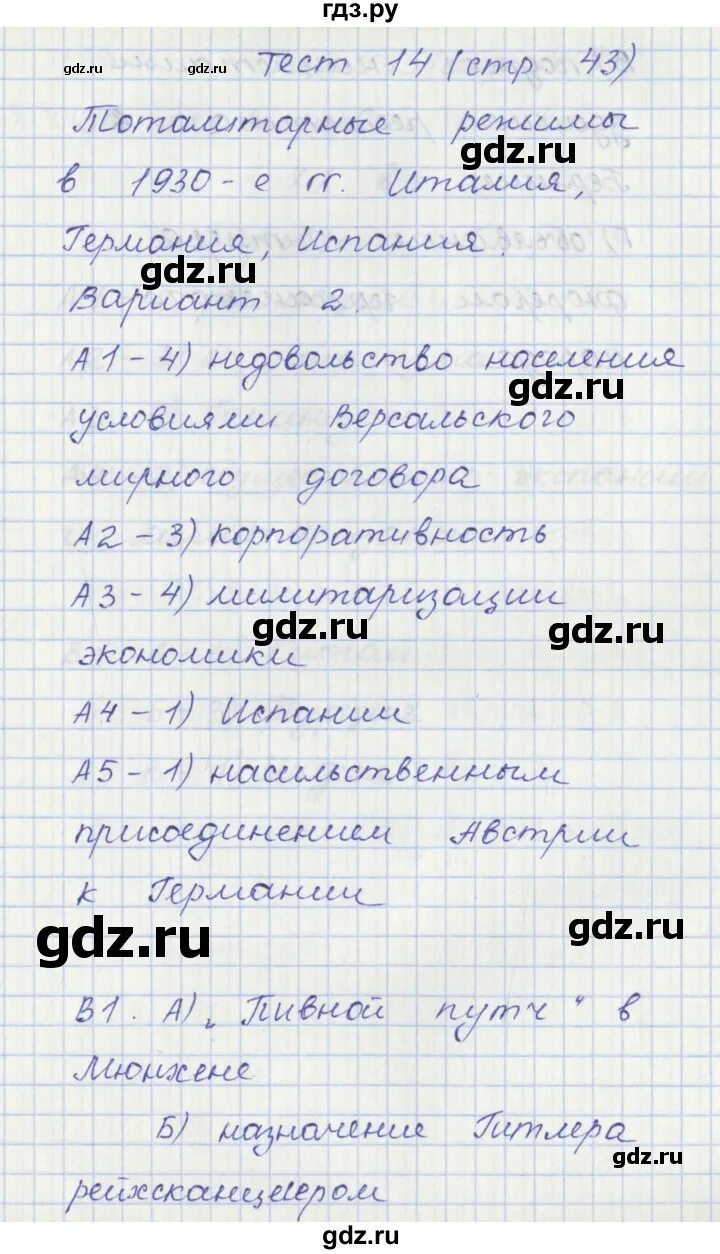 гдз.ру
Тест 14 (стр 43)
gdz.ru
gdz.ru
Тоталитарные режимы
gdz.ru
в 1930-е гг. Италия,
Германия, Испания.
gdz.ru
Вариант 2.
А1-4) недовольство населения
gdz.ru
условиями Версальского
мирного договора
А2-3) корпоративность
А3-4) милитаризации
gdz.ru
gdz.ru
экономики
А4-1) Испании
А5-1) насильственным
присоединением Австрии
к Германии
gdz.ru
gdz.ru
В1. А) „Пивной путч“ в
Мюнхене
Б) назначение Гитлера
gdz.ru
рейхсканцлером
gdz.ru